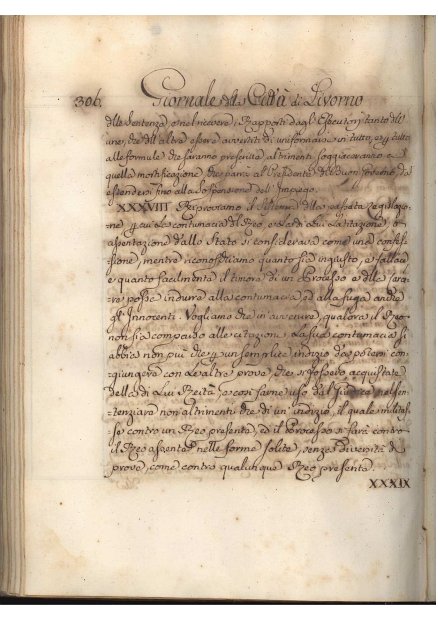 306. Giornale della Città di Livorno
delle Sentenze, o nel ricevere i Rapporti dagl' Esecutori, tanto dell'
une, che dell' altre essere avvertiti di uniformarsi in tutto, e per tutto
alle formule che saranno prescritte, altrimenti soggiaceranno a
quella mortificazione che parrà al Presidente del Buon Governo, da
estendersi fino alla sospensione dell' Impiego.
XXXVIII Riproviamo il Sistema della passata Legislazio-
ne, per cui la contumacia del Reo, o sia di lui la
aspentazione dallo Stato si considerava come una confes-
sione, mentre riconosciamo quanto sia ingiusto, e fallace
e quanto facilmente il timore di un Processo e delle carce-
re possa indurre alla contumacia, ed alla fuga anche
gl' Innocenti. Vogliamo che in avvenire, qualora il Reo
non sia comparso alle citazioni, la sua contumacia si
abbia non più che per un semplice indizio da potersi con-
giungere con le altre prove, che si fossero acquistate
della di Lui Reità, e così farne uso dal Giudice nel sen-
tenziare non altrimenti che di un' indizio, il quale militas-
se contro un Reo presente, ed il Processo si farà contro
il Reo assente nelle forme solite, senza diversità di
prove, come contro qualunque Reo presente.
XXXIX